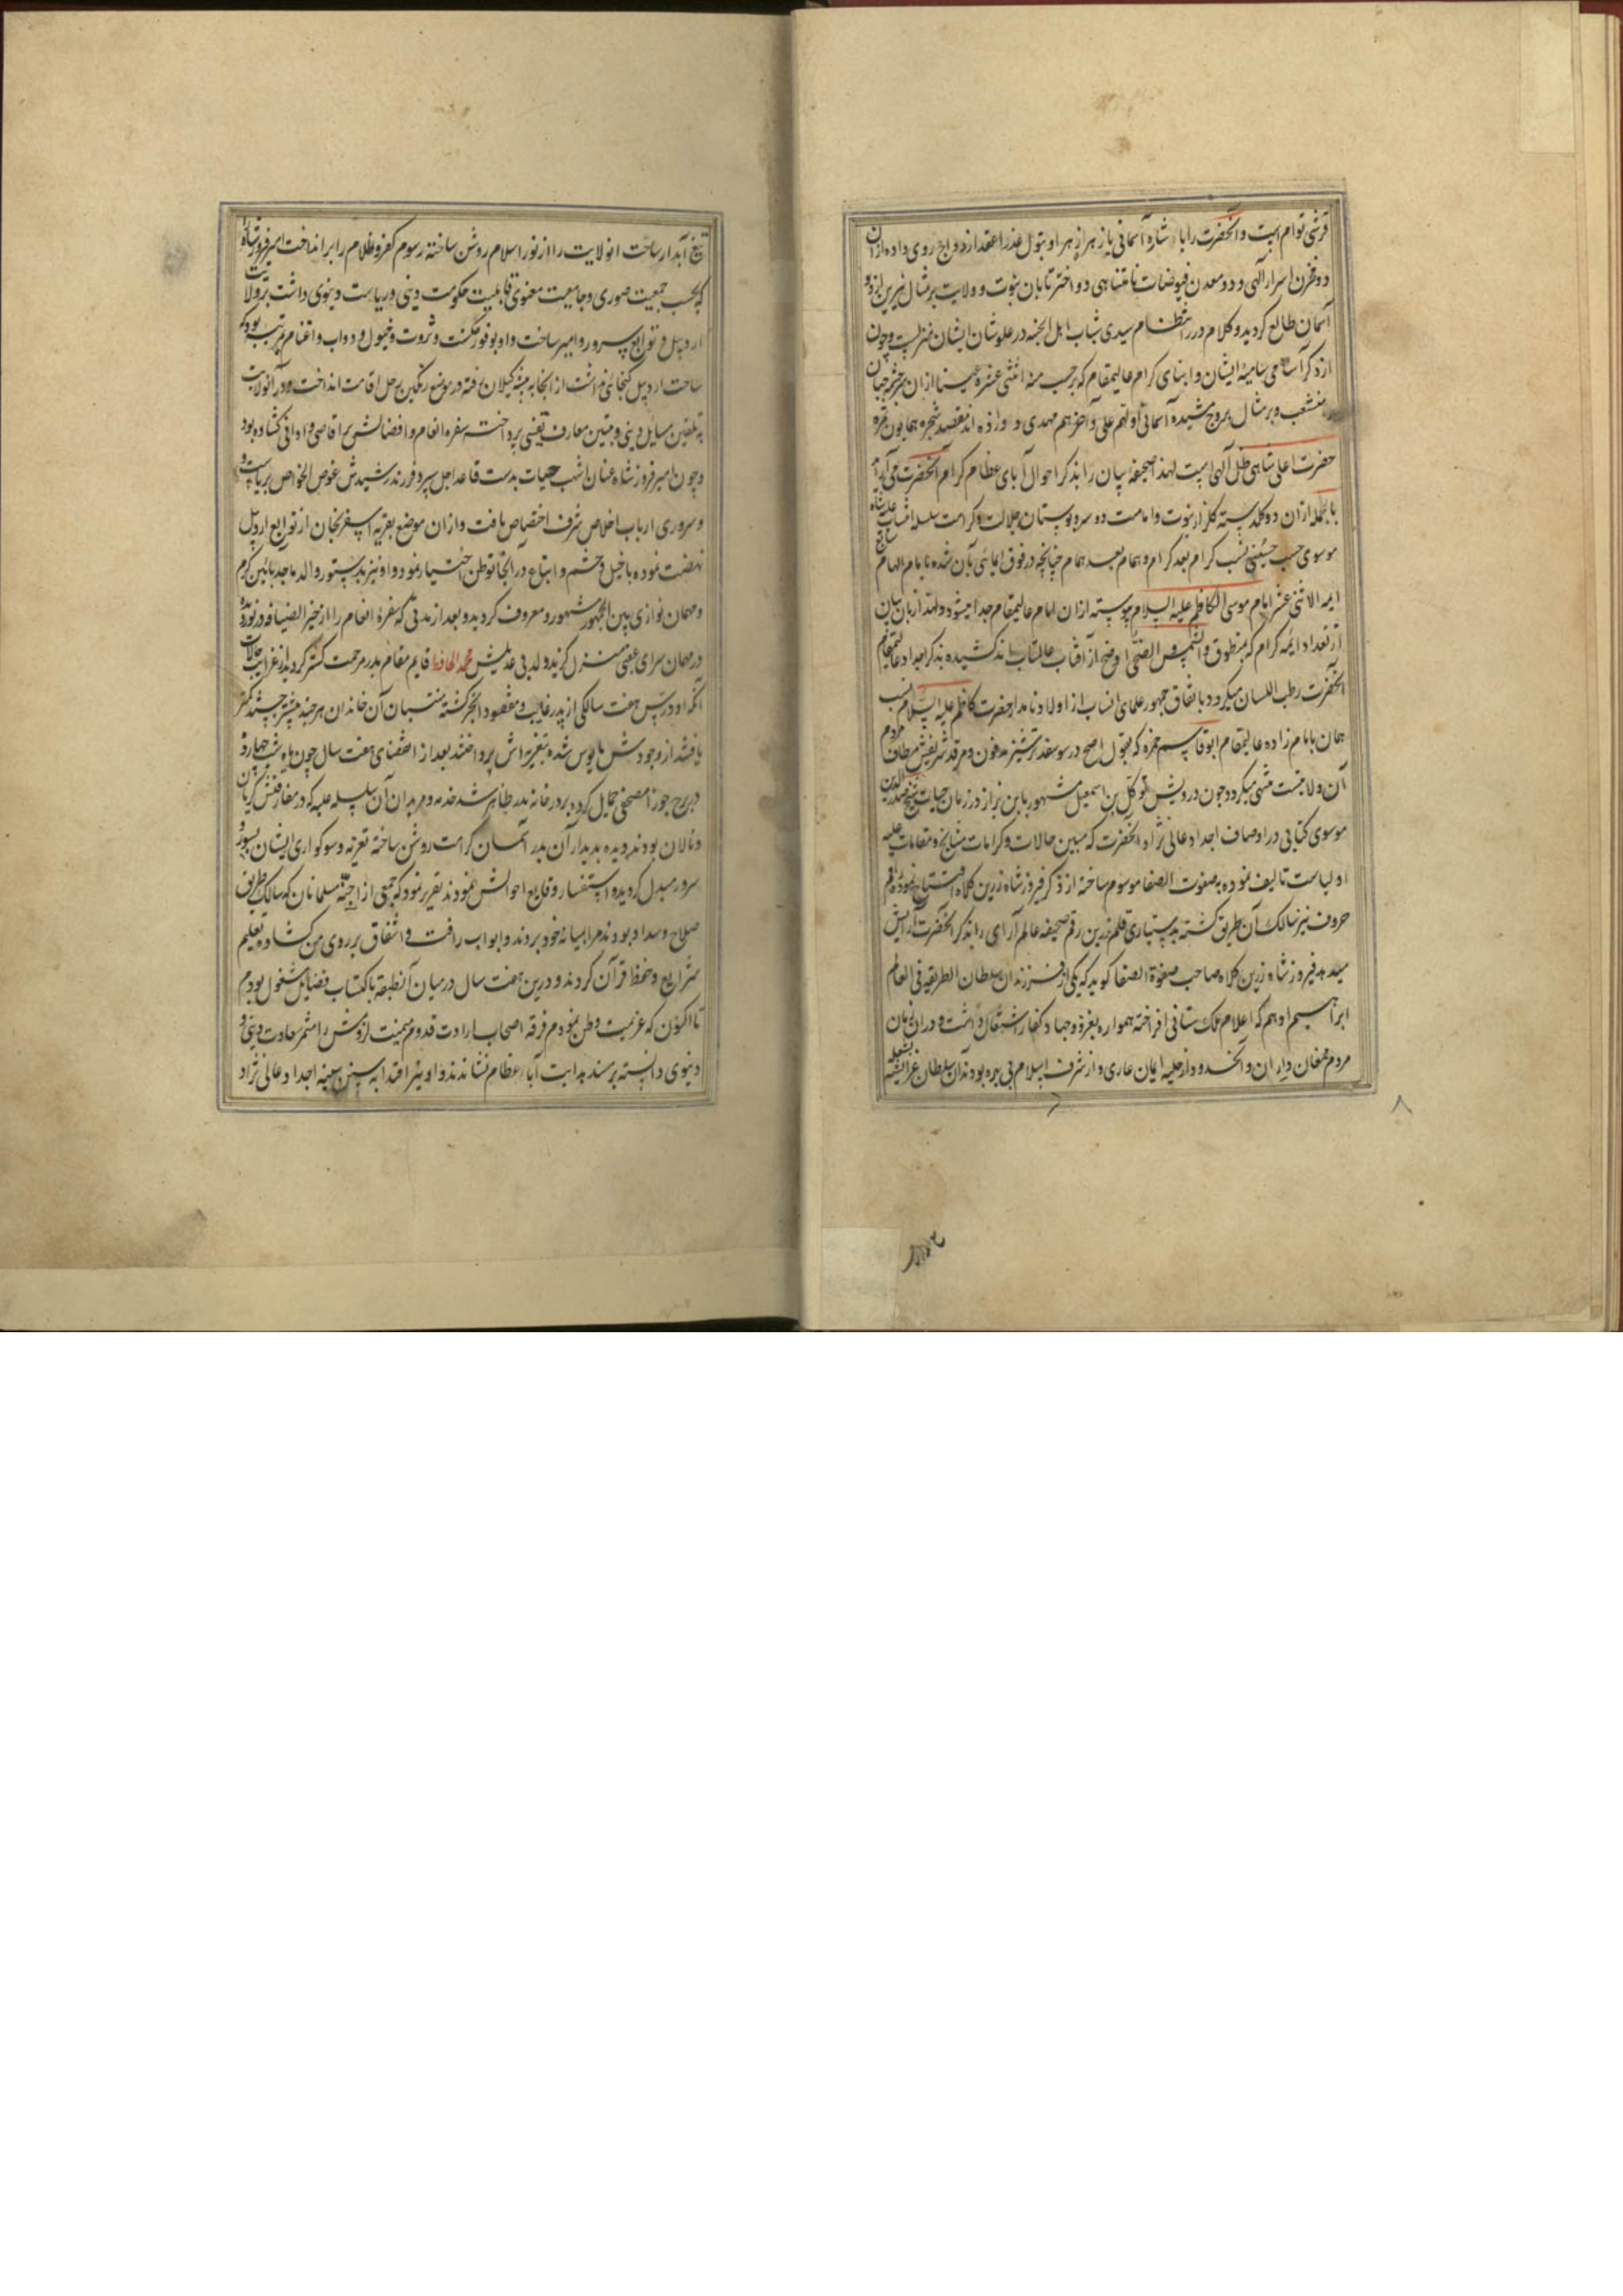 قرشی توام است و آنحضرت را با شاره آسمانی با زهرا زهرا و بتول عذرا عقد ازدواج روی داده از ان
دو مخزن اسرار الهی و دو معدن فیوضات نامتناهی دو اختر تابان نبوت و ولایت بر مثال نیرین از دو
آسمان طالع گردید و کلام درر انتظام سیدی شباب اهل الجنه در علو شان ایشان منزلست و چون
از ذکر آسامی سامیه ایشان و ابنای کرام عالیمقام که بر حسب منه اثنتی عشره عینا از ان سرچشمه جهان
منشعب و بر مثال بروج مشیده آسمانی اولهم علی و آخرهم مهدی و مقصد شجره همایون ثمره
حضرت اعلی شاهی ظل الهی است لهذا صحیفه بیان را بذکر احوال آبای عظام کرام آنحضرت می آراید
بالجمله از ان دو گلدسته گلزار نبوت و امامت دو سرو بوستان جلالت و کرامت سلسله انتساب علیه شاه
موسوی حسب حسینی نسب کرام بعد کرام و همام بعد همام چنانچه در فوق ایمائی بآن شده تا بامام الهمام
ایمه الاثنی عشر امام موسی الکاظم علیه السلام پیوسته از ان امام عالیمقام جدا میشود و لهذا زبان بیان
از تعداد ایمه کرام که بمنطوق و الشمس و الضحی اوضح از آفتاب عالمتاب اند کشیده بذکر اجداد عالیمقام
آنحضرت رطب اللسان میگردد باتفاق جمهور علمای انساب از اولاد نامدار حضرت کاظم علیه السلام نسب
همان بامام زاده عالیمقام ابو قاسم حمزه که بقول اصح در سوسفد ترشیز مدفون و مرقد شریفش مطاف مردم
آن ولایتست منتهی میگردد چون درویش توکل بن اسمعیل مشهور بابن بزاز در زمان حیات شیخ صدر الدین
موسوی کتابی در اوصاف اجداد عالی نژاد آنحضرت که مبین حالات و کرامات مشایخ و مقامات علیه
اولیاست تالیف نموده بصفوت الصفا موسوم ساخته از ذکر فیروز شاه زرین کلاه افتتاح نموده راقم
حروف نیز سالک آن طریق گشته بدستیاری قلم زرین رقم صحیفه عالم آرای را بذکر آنحضرت آرایش
میدهد فیروز شاه زرین کلاه صاحب صفوة الصفا گوید که یکی از فرزندان سلطان الطریقه فی العالم
ابراهیم ادهم که اعلام ملک ستانی افراخته همواره بغزو و جهاد کفار اشتغال داشت و دران زمان
مردم مغان و اران و آنحدود از حلیه ایمان عاری و از شرف اسلام بی بهره بودند آن سلطان غزا پیشه بشعله
تیغ آبدار ساحت انولایت را از نور اسلام روشن ساخته رسوم کفر و ظلام را برانداخت امیر فیروز شاه را
که بحسب جمعیت صوری و جامعیت معنوی قابلیت حکومت دینی و ریاست دنیوی داشت بر ولایت
اردبیل و توابع سرور و امیر ساخت و او بوفور مکنت و ثروت و خیول و دواب و اغنام مرتب بود که
ساحت اردبیل گنجائی نداشت از انجا به بیشه گیلان رفته در موضع رنگین رحل اقامت انداخت و در آنولایت
به تلقین مسایل دینی و تبیین معارف یقینی پرداخت سفره انعام و افضالش بر اقاصی و ادانی گشاده بود
و چون امیر فیروز شاه عنان اشهب حیات بدست قاصد اجل سپرد فرزند رشیدش عوض الخواص بریاست
و سروری ارباب اخلاص شرف اختصاص یافت و از ان موضع بقریه اسفرنجان از توابع اردبیل
نهضت نموده با خیل و حشم و اتباع در آنجا توطن اختیار نمود و او نیز بدستور والد ماجد بآئین کرم
و مهمان نوازی بین الجمهور مشهور و معروف گردید و بعد از مدتی که سفره انعام را از خیر الضیافه در نوردید
در مهمان سرای عقبی منزل گزید و لد بی عدیلش محمد الحافظ قایم مقام پدر مرحمت گستر گردید از غرایب حالات
آنکه او در سن هفت سالگی از پدر غایب و مفقود الخبر گشته منتسبان آن خاندان هر چند بیشتر جستند کمتر
یافتند از وجودش مایوس شده بتعزیه اش پرداختند بعد از انقضای هفت سال چون ماه شب چهارده
در برج جوزا مصحفی حمایل کرده بر در خانه پدر ظاهر شد خدمه و مریدان آن سلسله علیه که در مفارقتش گریان
و نالان بودند دیده بدیدار آن بدر آسمان کرامت روشن ساخته تعزیه و سوگواری ایشان بسور و
سرور مبدل گردید و استفسار وقایع احوالش نمودند تقریر نمود که جمعی از اجنه مسلمانان که سالک طریق
صلاح و سداد بودند مرا بمیانه خود بردند و ابواب رافت و اشفاق بر روی من گشاده بتعلیم
شرایع و حفظ قرآن کردند و درین هفت سال در میان آنطبقه باکتساب فضایل مشغول بودم
تا اکنون که عزیمت وطن نمودم فرقه اصحاب ارادت قدوم میمنت لزومش را مثمر سعادت دینی و
دنیوی دانسته بر مسند هدایت آباء عظام نشاندند و او نیز اقتدا به سنن سنیه اجداد عالی نژاد